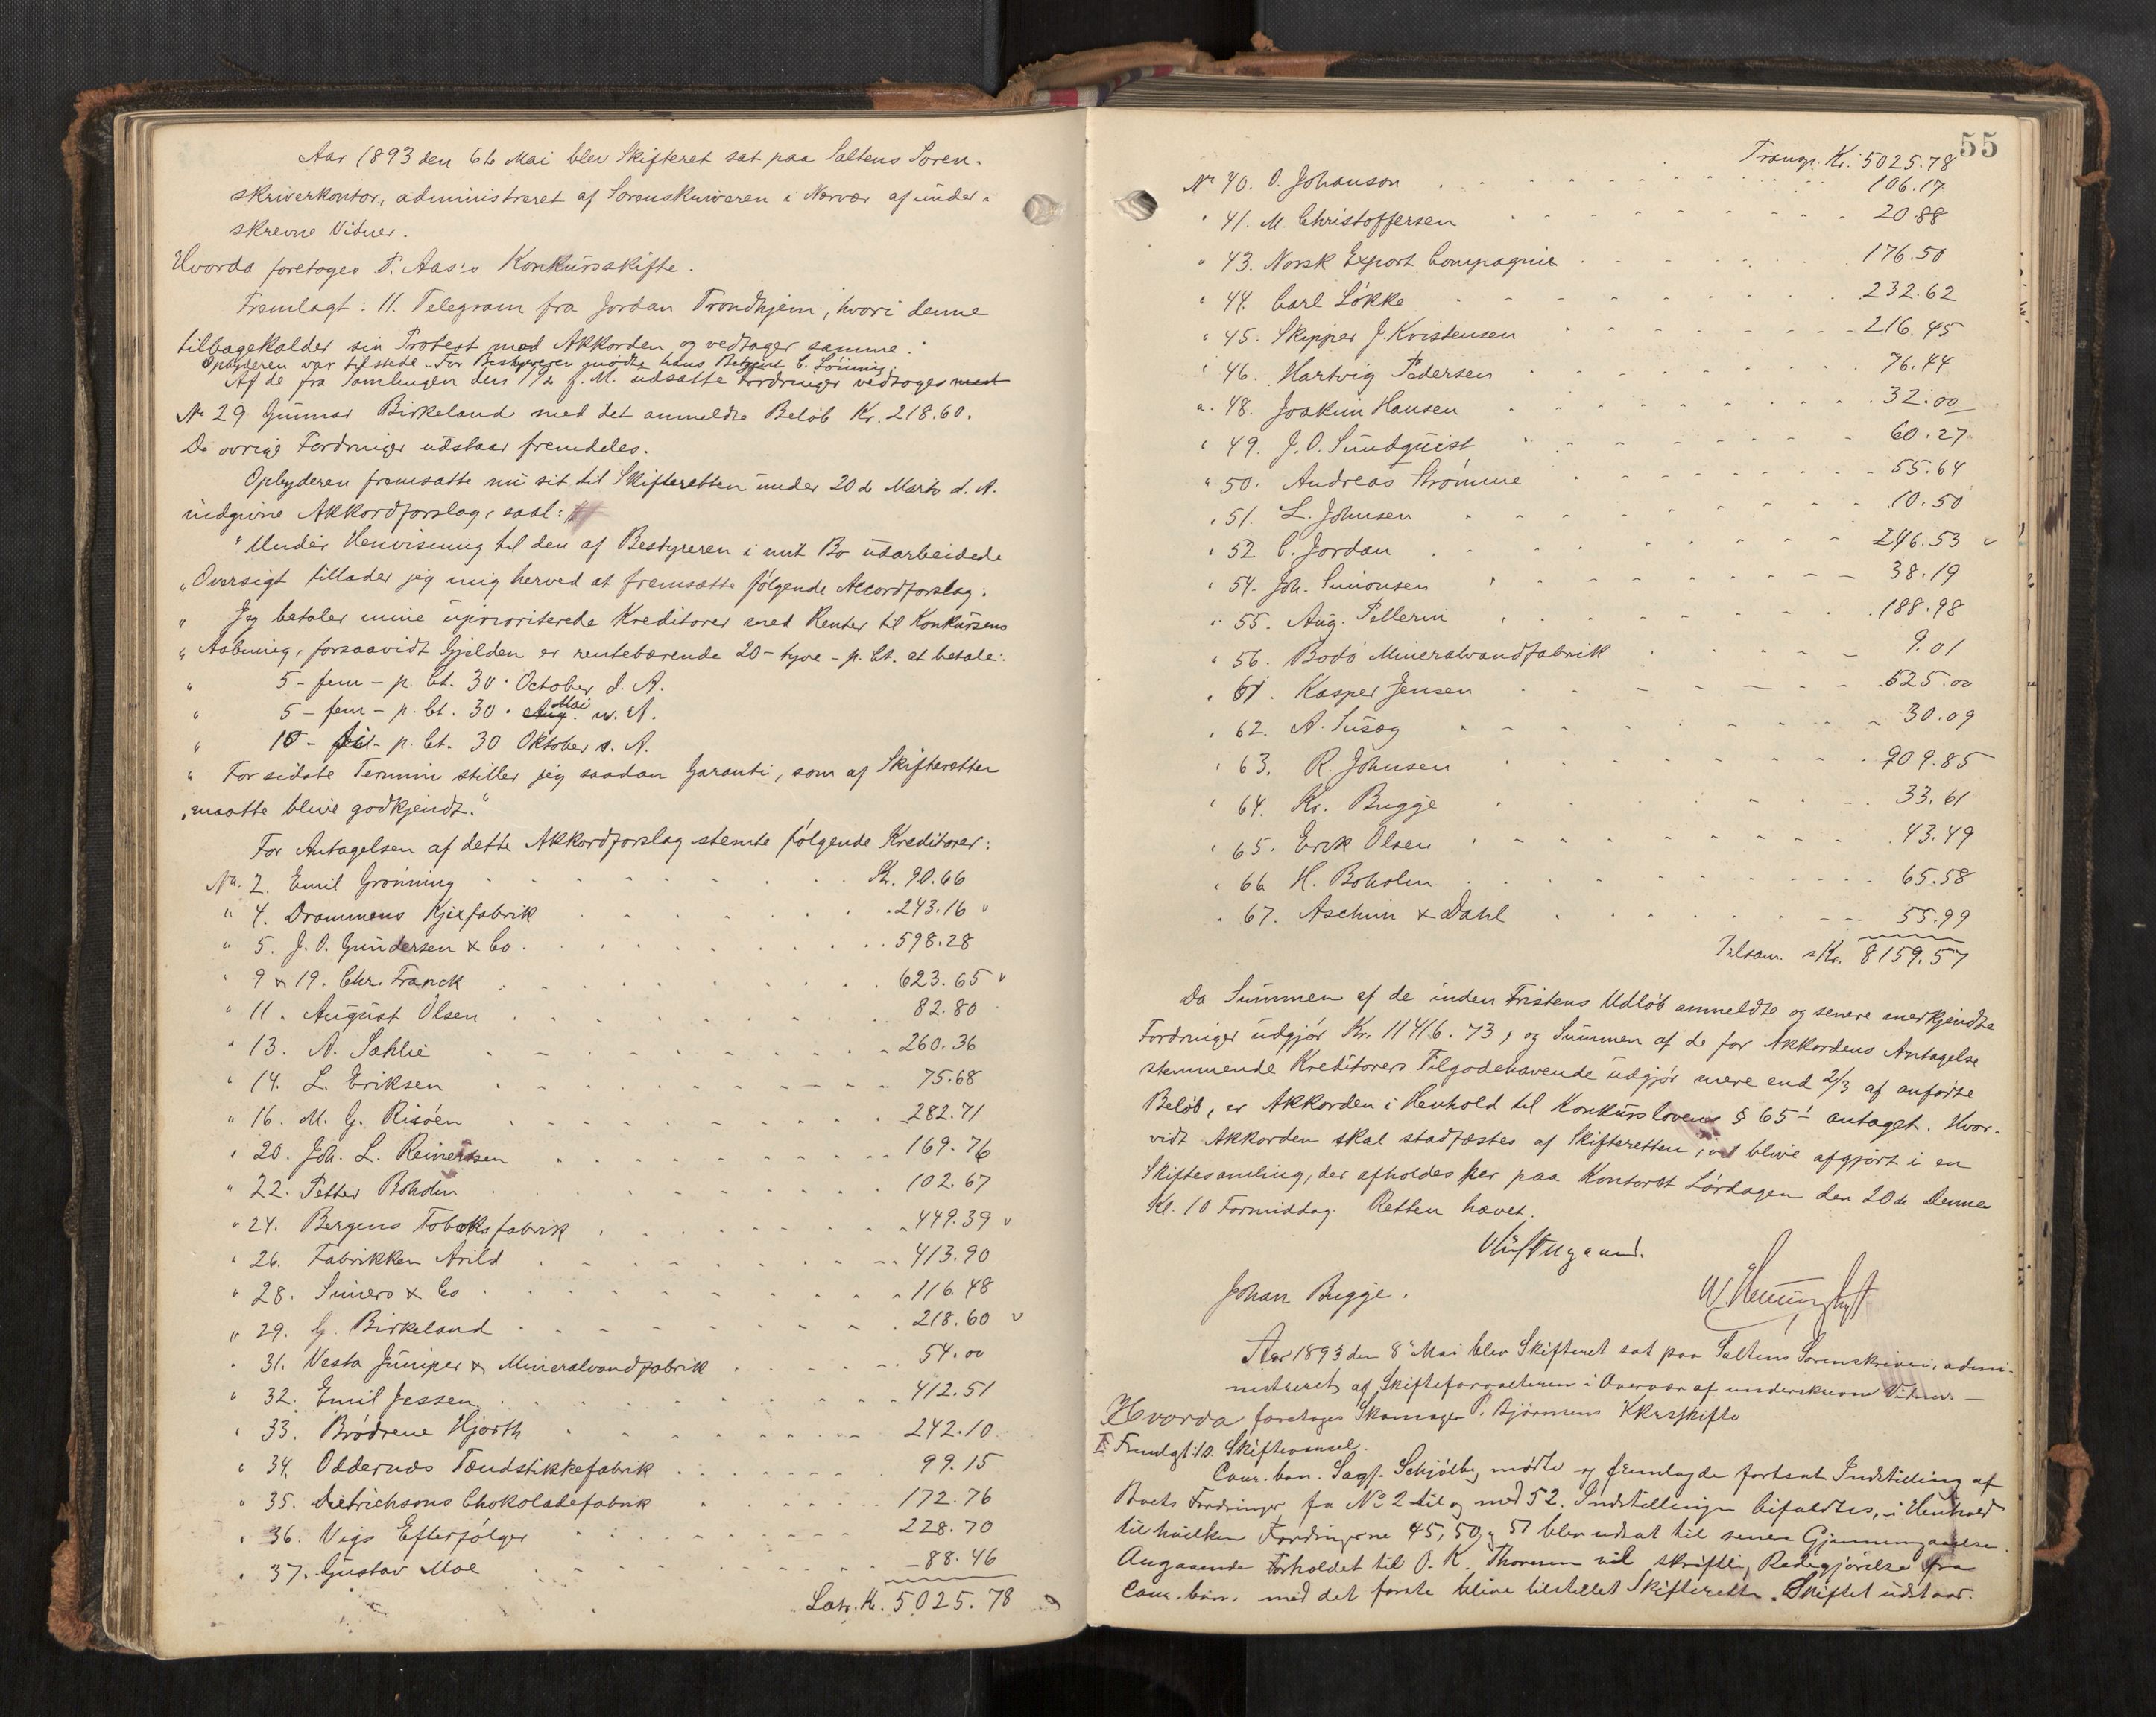 Aar 1893 den 6te Mai blev Skifteret sat paa Saltens Soren-
skriverkontor, administreret af Sorenskriveren i Nærvær af under-
skrevne Vidner.
Hvorda foretoges P. Aas's Konkursskifte.
Fremlagt: 11. Telegram fra Jordan Trondhjem, hvori denne
tilbagekalder sin Protest mod Akkorden og vedtager samme.
Opbyderen var tilstede. For Bestyreren mødte hans Betjent C. Lönning.
Af de fra Samlingen den 1ste f. M. udsatte Fordringer vedtoges med
No 29 Gunnar Birkeland med det anmeldte Beløb Kr. 218.60.
De øvrige Fordringer udstaar fremdeles.
Opbyderen fremsatte nu sit til Skifteretten under 20de Marts d. A.
indgivne Akkordforslag, saal:
"Under Henvisning til den af Bestyreren i mit Bo udarbeidede
"Oversigt tillader jeg mig herved at fremsætte følgende Accordforslag:
" Jeg betaler mine uprioriterede Kreditorer med Renter til Konkursens
" Aabning, forsaavidt Gjælden er rentebærende 20 - tyve - p. Ct. at betale:
" 5 - fem - p. Ct. 30. October d. A.
" 5 - fem - p. Ct. 30. Aug. Mai n. A.
" 10 - ti - p. Ct. 30 Oktober s. A.
" For sidste Termin stiller jeg saadan Garanti, som af Skifteretten
"maatte blive godkjendt."
For Antagelsen af dette Akkordforslag stemte følgende Kreditorer:
No. 2. Emil Grønning Kr. 90.66
" 4. Drammens Kjixfabrik 243.16 v
" 5. J. O. Gundersen & Co. 598.28
" 9 & 19. Chr. Franck 623.65 v
" 11. August Olsen 82.80
" 13. A. Sæhlie 260.36
" 14. L. Eriksen 75.68
" 16. M. G. Risöen 282.71
" 20. Joh. L. Reinertsen 169.76
" 22. Petter Boholm 102.67
" 24. Bergens Tobaksfabrik 449.39 v
" 26. Fabrikken Arild 413.90
" 28. Simers & Co 116.48
" 29. G. Birkeland 218.60 v
" 31. Vesta Juniper & Mineralvandfabrik 54.00
" 32. Emil Jessen 412.51
" 33. Brødrene Hjorth 242.10
" 34. Oddernes Tændstikkefabrik 99.15
" 35. Dietrichsons Chokoladefabrik 172.76
" 36. Vigs Efterfølger 228.70
" 37. Gustav Moe 88.46
Latr. Kr. 5025.78
55
Transp. Kr. 5025.78
No 40. O. Johanson 106.17
" 41. M. Christoffersen 20.88
" 43. Norsk Export Compagnie 176.50
" 44. Carl Løkke 232.62
" 45. Skipper J. Kvistensen 216.45
" 46. Hartvig Pedersen 76.44
" 48. Joakim Hansen 32.00
" 49. J. O. Sundquist 60.27
" 50. Andreas Strømme 55.64
" 51. L. Johnsen 10.50
" 52 C. Jordan 246.53 v
" 54. Joh. Simonsen 38.19
" 55. Aug. Pellerin 188.98
" 56. Bodö Mineralvandfabrik 9.01
" 61. Kasper Jensen 525.00
" 62. A. Susæg 30.09
" 63. R. Johnsen 909.85
" 64. Kr. Bugge 33.61
" 65. Erik Olsen 43.49
" 66 H. Boholm 65.58
" 67. Aschim & Dahl 55.99
Tilsam. Kr. 8159.57
Da Summen af de inden Fristens Udløb anmeldte og senere anerkjendte
Fordringer udgjør Kr. 11416.73, og Summen af de for Akkordens Antagelse
stemmende Kreditorers Tilgodehavende udgjør mere end 2/3 af anførte
Beløb, er Akkorden i Henhold til Konkurslovens § 65 antaget. Hvor-
vidt Akkorden skal stadfæstes af Skifteretten, vil blive afgjort i en
Skiftesamling, der afholdes her paa Kontoret Lørdagen den 20de Dennes
Kl. 10 Formiddag. Retten hævet.
Johan Bugge.
Aar 1893 den 8de Mai blev Skifteret sat paa Saltens Sorenskriveri, admi-
nistreret af Skifteforvalteren i Overvær af underskrevne Vidner. —
Hvorda foretoges Skomager P. Bjørnsens KKrsskifte
Fremlagt: 10. Skiftevarsel.
Cour. bon. Sagf. Schjølbeg mødte og fremlagde fortsat Indstilling af
Boets Fordringer fra No 2 til og med 52. Indstillingen bifaldtes, i Henhold
til hvilken Fordringerne 45, 50 og 51 blev udsat til senere Gjennemgaaelse.
Angaaende Forholdet til O. K. Thoresen vil skriftlig Redegjørelse fra
Cour. bon. med det første blive tilstillet Skifteretten. Skiftet udstaar.